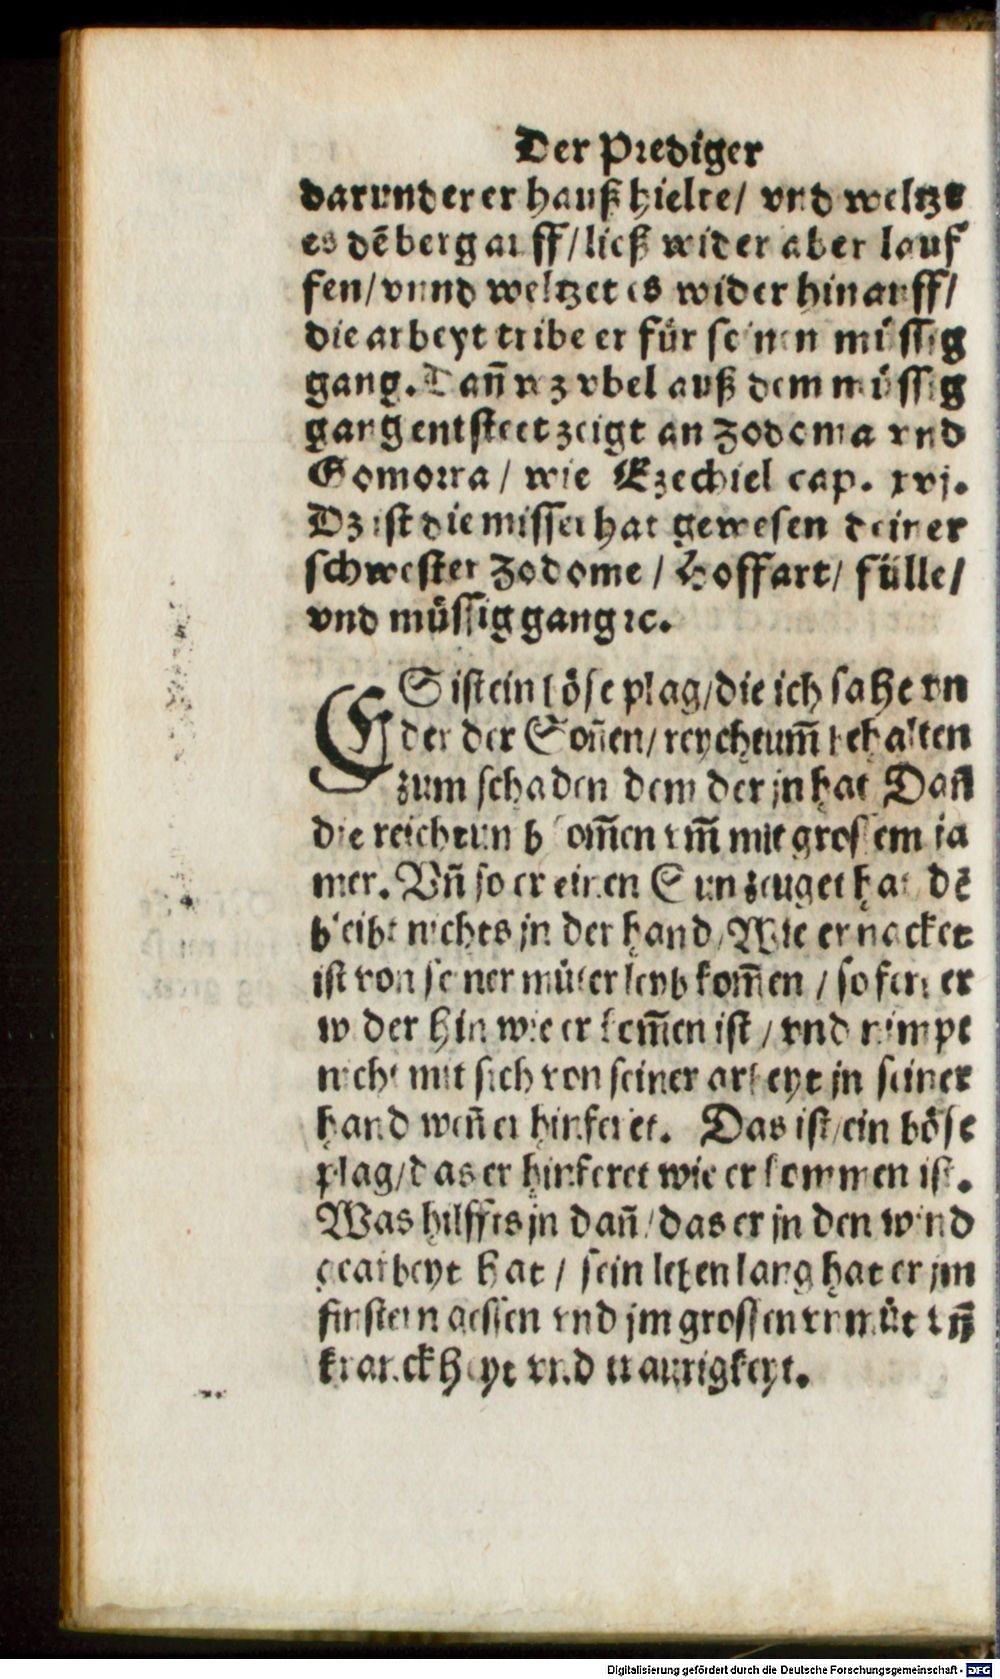 Der Prediger
darunder er hauß hielte/ vnd weltzt
es dē berg auff/ließ wider aber lauf
fen/vnnd weltzet es wider hinauff/
die arbeyt tribe er für seinen müssig
gang. Dañ wz vbel auß dem müssig
gang entsteet zeigt an Zodoma vnd
Gomorra/ wie Ezechiel cap. xvj.
Dz ist die missethat gewesen deiner
schwester Zodome / Hoffart/ fülle/
vnd müssig gang ꝛc.
ES ist ein böse plag/die ich sahe vn
der der Soñen/ reychtum̃ behalten
zum schaden dem der jn hat Dañ
die reichtun kom̃en vm̃ mit grossem ja
mer. Vñ so er einen Sun zeuget hat dē
bleibt nichts jn der hand/Wie er nacket
ist von seiner müter leyb kom̃en / so fert er
wider hin wie er kom̃en ist / vnd nimpt
nicht mit sich von seiner arbeyt jn seiner
hand weñ er hinferet. Das ist ein böse
plag/das er hinferet wie er kommen ist.
Was hilffts jn dañ/das er jn den wind
gearbeyt hat / sein leben lang hat er jm
finstern gessen vnd jm grossen vnmüt vñ
kranckheyt vnd traurigkeyt.
Digitalisierung gefördert durch die Deutsche Forschungsgemeinschaft - DFG